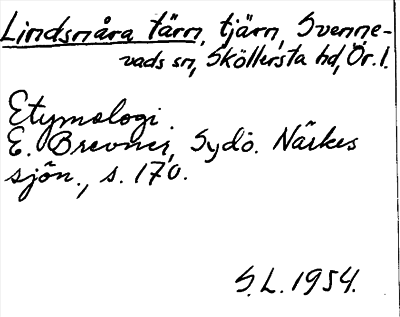 Lindsnåra tärn, tjärn, Svenne-
vads sn, Sköllersta hd, Ör. l.
Etymologi.
E. Brevner, Sydö. Närkes
sjön., s. 170.
S.L. 1954.